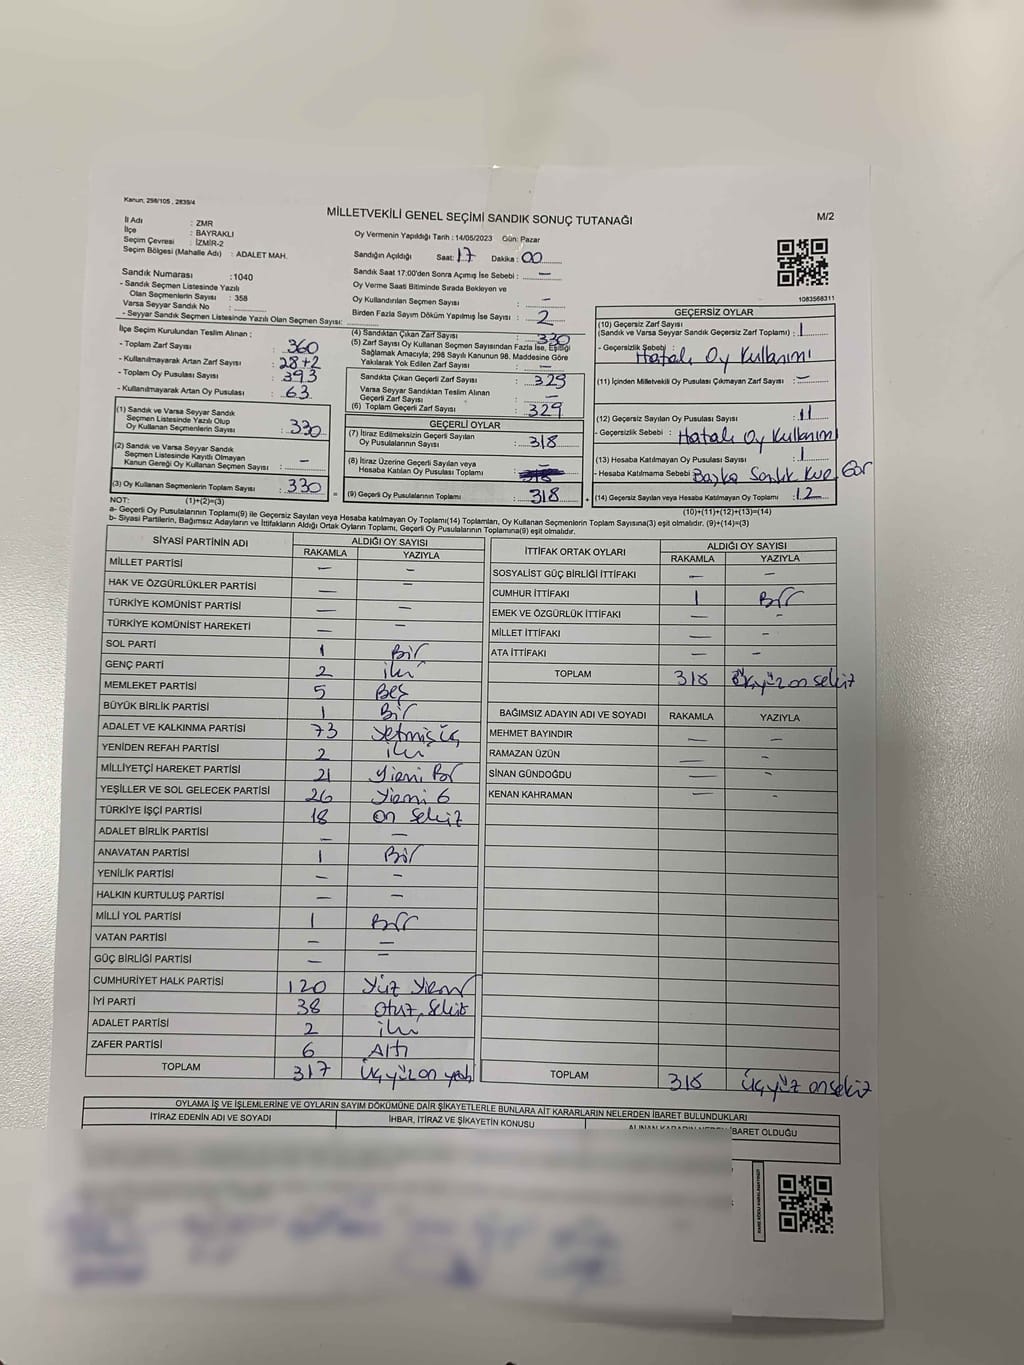 Kanun, 298/105 , 2839/4
MİLLETVEKİLİ GENEL SEÇİMİ SANDIK SONUÇ TUTANAĞI
M/2
İl Adı : ZMR
İlçe : BAYRAKLI
Seçim Çevresi : İZMİR-2
Seçim Bölgesi (Mahalle Adı) : ADALET MAH.
Oy Vermenin Yapıldığı Tarih : 14/05/2023 Gün: Pazar
Sandığın Açıldığı Saat: 17 Dakika : 00
Sandık Saat 17:00'den Sonra Açımış İse Sebebi : —
Oy Verme Saati Bitiminde Sırada Bekleyen ve
Oy Kullandırılan Seçmen Sayısı : —
Birden Fazla Sayım Döküm Yapılmış İse Sayısı : 2
1083568311
Sandık Numarası : 1040
- Sandık Seçmen Listesinde Yazılı
Olan Seçmenlerin Sayısı : 358
Varsa Seyyar Sandık No :
- Seyyar Sandık Seçmen Listesinde Yazılı Olan Seçmen Sayısı:
İlçe Seçim Kurulundan Teslim Alınan :
- Toplam Zarf Sayısı : 360
- Kullanılmayarak Artan Zarf Sayısı : 28+2
- Toplam Oy Pusulası Sayısı : 393
- Kullanılmayarak Artan Oy Pusulası : 63
(1) Sandık ve Varsa Seyyar Sandık
Seçmen Listesinde Yazılı Olup
Oy Kullanan Seçmenlerin Sayısı : 330
(2) Sandık ve Varsa Seyyar Sandık
Seçmen Listesinde Kayıtlı Olmayan
Kanun Gereği Oy Kullanan Seçmen Sayısı : —
(3) Oy Kullanan Seçmenlerin Toplam Sayısı : 330
(1)+(2)=(3)
(4) Sandıktan Çıkan Zarf Sayısı : 330
(5) Zarf Sayısı Oy Kullanan Seçmen Sayısından Fazla İse, Eşitliği
Sağlamak Amacıyla; 298 Sayılı Kanunun 98. Maddesine Göre
Yakılarak Yok Edilen Zarf Sayısı : —
Sandıkta Çıkan Geçerli Zarf Sayısı : 329
Varsa Seyyar Sandıktan Teslim Alınan
Geçerli Zarf Sayısı : —
(6) Toplam Geçerli Zarf Sayısı : 329
GEÇERLİ OYLAR
(7) İtiraz Edilmeksizin Geçerli Sayılan
Oy Pusulalarının Sayısı : 318
(8) İtiraz Üzerine Geçerli Sayılan veya
Hesaba Katılan Oy Pusulası Toplamı :
(9) Geçerli Oy Pusulalarının Toplamı : 318
GEÇERSİZ OYLAR
(10) Geçersiz Zarf Sayısı
(Sandık ve Varsa Seyyar Sandık Geçersiz Zarf Toplamı) : 1
- Geçersizlik Sebebi : Hatalı Oy Kullanımı
(11) İçinden Milletvekili Oy Pusulası Çıkmayan Zarf Sayısı : —
(12) Geçersiz Sayılan Oy Pusulası Sayısı : 11
- Geçersizlik Sebebi : Hatalı Oy Kullanımı
(13) Hesaba Katılmayan Oy Pusulası Sayısı : 1
- Hesaba Katılmama Sebebi : Başka Sandık
(14) Geçersiz Sayılan veya Hesaba Katılmayan Oy Toplamı : 12
(10)+(11)+(12)+(13)=(14)
NOT:
a- Geçerli Oy Pusulalarının Toplamı(9) ile Geçersiz Sayılan veya Hesaba katılmayan oy Toplamı(14) Toplamları, Oy Kullanan Seçmenlerin Toplam Sayısına(3) eşit olmalıdır. (9)+(14)=(3)
b- Siyasi Partilerin, Bağımsız Adayların ve İttifakların Aldığı Ortak Oyların Toplamı, Geçerli Oy Pusulalarının Toplamına(9) eşit olmalıdır.
SİYASİ PARTİNİN ADI
ALDIĞI OY SAYISI
RAKAMLA YAZIYLA
MİLLET PARTİSİ — —
HAK VE ÖZGÜRLÜKLER PARTİSİ — —
TÜRKİYE KOMÜNİST PARTİSİ — —
TÜRKİYE KOMÜNİST HAREKETİ — —
SOL PARTİ 1 Bir
GENÇ PARTİ 2 iki
MEMLEKET PARTİSİ 5 Beş
BÜYÜK BİRLİK PARTİSİ 1 Bir
ADALET VE KALKINMA PARTİSİ 73 Yetmiş üç
YENİDEN REFAH PARTİSİ 2 iki
MİLLİYETÇİ HAREKET PARTİSİ 21 Yirmi Bir
YEŞİLLER VE SOL GELECEK PARTİSİ 26 Yirmi 6
TÜRKİYE İŞÇİ PARTİSİ 18 on sekiz
ADALET BİRLİK PARTİSİ — —
ANAVATAN PARTİSİ 1 Bir
YENİLİK PARTİSİ — —
HALKIN KURTULUŞ PARTİSİ — —
MİLLİ YOL PARTİSİ 1 Bir
VATAN PARTİSİ — —
GÜÇ BİRLİĞİ PARTİSİ — —
CUMHURİYET HALK PARTİSİ 120 Yüz Yirmi
İYİ PARTİ 38 otuz sekiz
ADALET PARTİSİ 2 iki
ZAFER PARTİSİ 6 Altı
TOPLAM 317 Üçyüz on yedi
İTTİFAK ORTAK OYLARI
ALDIĞI OY SAYISI
RAKAMLA YAZIYLA
SOSYALİST GÜÇ BİRLİĞİ İTTİFAKI — —
CUMHUR İTTİFAKI 1 Bir
EMEK VE ÖZGÜRLÜK İTTİFAKI — -
MİLLET İTTİFAKI — -
ATA İTTİFAKI — -
TOPLAM 318 Üçyüz on sekiz
BAĞIMSIZ ADAYIN ADI VE SOYADI RAKAMLA YAZIYLA
MEHMET BAYINDIR — —
RAMAZAN ÜZÜN — -
SİNAN GÜNDOĞDU — -
KENAN KAHRAMAN — -
TOPLAM 318 Üçyüz onsekiz
OYLAMA İŞ VE İŞLEMLERİNE VE OYLARIN SAYIM DÖKÜMÜNE DAİR ŞİKAYETLERLE BUNLARA AİT KARARLARIN NELERDEN İBARET BULUNDUKLARI
İTİRAZ EDENİN ADI VE SOYADI
İHBAR, İTİRAZ VE ŞİKAYETİN KONUSU
İBARET OLDUĞU